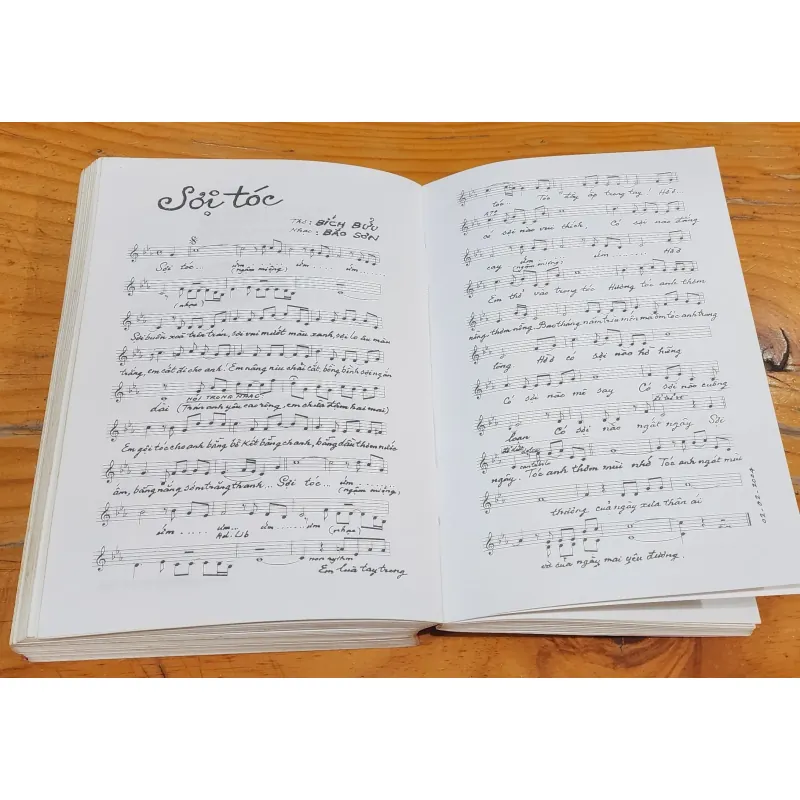 Sợi tóc
THƠ: BÍCH BỬU
NHẠC: BẢO SƠN
Sợi tóc... ừm...... ừm...... ừm...
(ngậm miệng)
(nhạc)
Sợi buồn xoã trên trán, sợi vui mướt màu xanh, sợi lo âu màu
trắng, em cắt đi cho anh! Em nâng niu chải cắt, bồng bềnh sợi ngắn
NÓI TRONG NHẠC
dài (Trán anh yêu cao rộng, em chưa đếm hai mai)
Em gội tóc cho anh bằng bồ kết bằng chanh, bằng dầu thơm nước
ấm, bằng nắng sớm trăng thanh... Sợi tóc... ừm.....
(ngậm miệng)
ừm...... ừm...... ừm...... ừm
(nhạc)
Ad. Lib
non rythm
Em lùa tay trong
tóc Tóc đầy ắp trong tay! Hỡi
có sợi nào vui thích. Có sợi nào đắng
cay ừm...... ừm...... Hỡi
(ngậm miệng)
Em thở vào trong tóc Hương tóc anh thơm
nồng, thơm nồng. Bao tháng năm trìu mến mái tóc anh trong
lòng Hỡi có sợi nào hờ hững
Có sợi nào mê say Có sợi nào cuồng
loạn Có sợi nào ngất ngây Sợi
cantabile
ngây. Tóc anh thơm mùi nhớ Tóc anh ngát mùi
thương của ngày xưa thân ái
và của ngày mai yêu đương.
02.02.2004